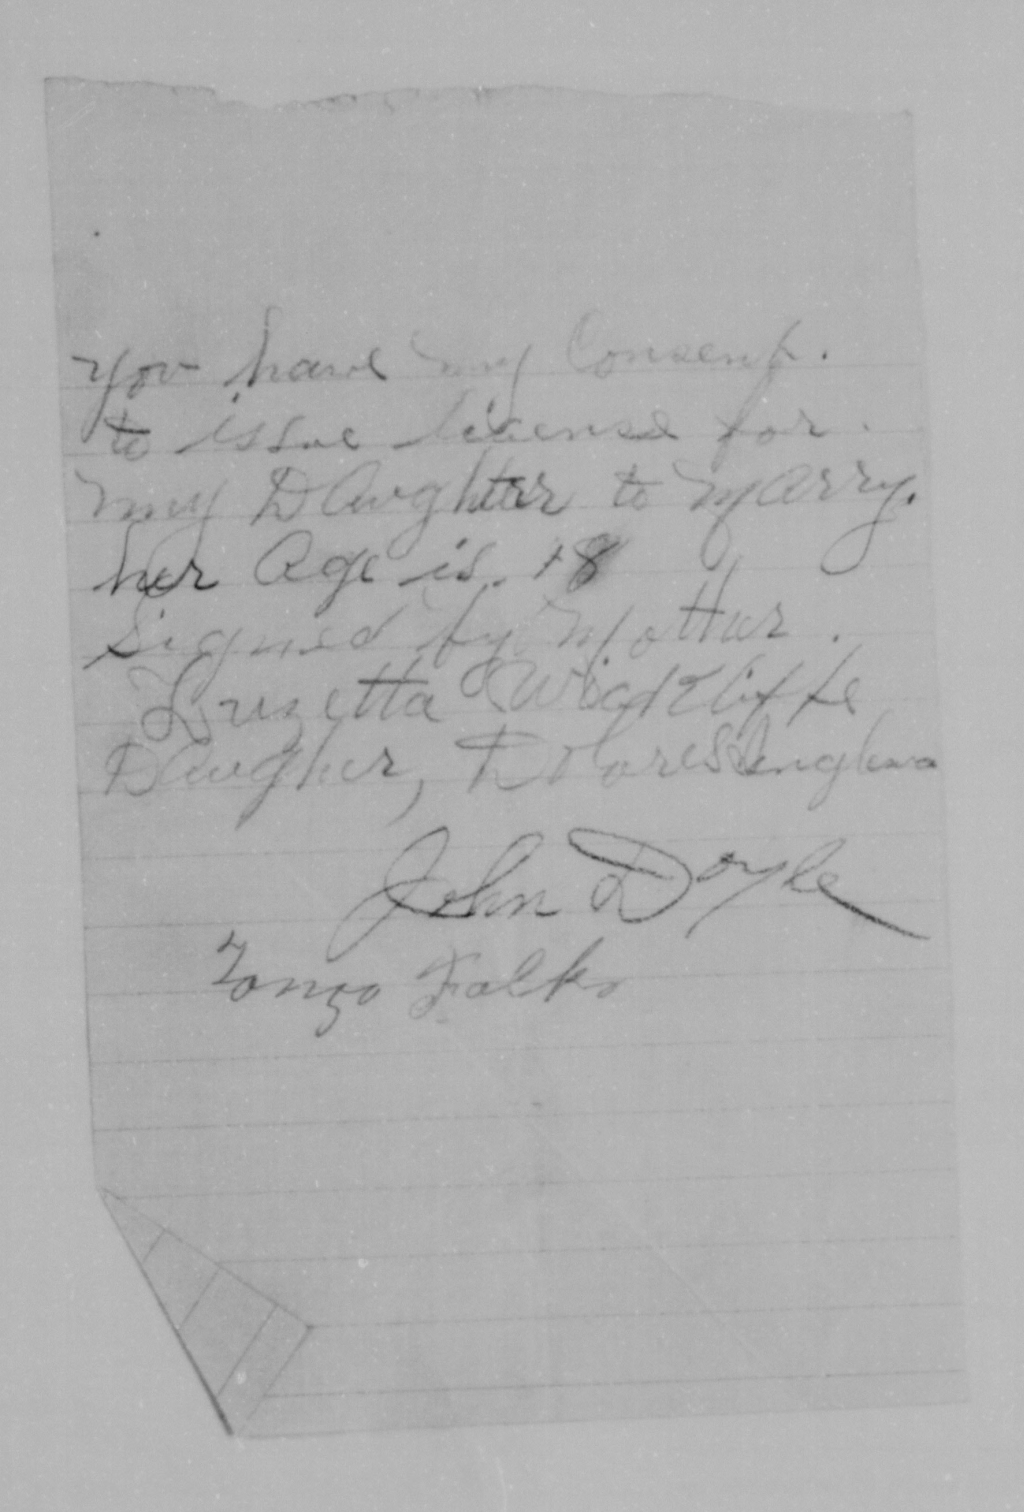 you have my Consent.
to issue license for.
my DAughter to MArry.
her Age is 18
Signed by Mother.
Luzetta Wickliffe
DAugher, Dolores
John Doyle
Lonzo Falks